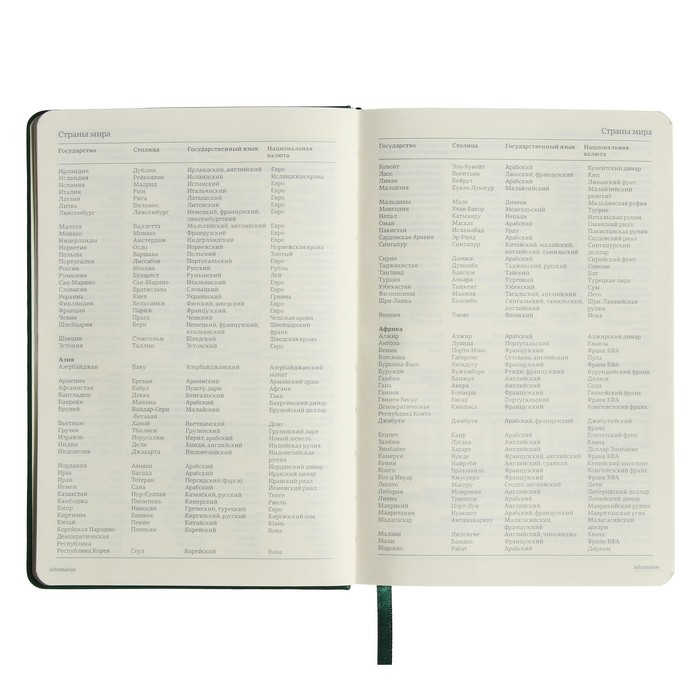 Страны мира
Государство Столица Государственный язык Национальная
валюта
Ирландия Дублин Ирландский, английский Евро
Исландия Рейкьявик Исландский Исландская крона
Испания Мадрид Испанский Евро
Италия Рим Итальянский Евро
Латвия Рига Латышский Евро
Литва Вильнюс Литовский Евро
Люксембург Люксембург Немецкий, французский, Евро
люксембургский
Мальта Валлетта Мальтийский, английский Евро
Монако Монако Французский Евро
Нидерланды Амстердам Нидерландский Евро
Норвегия Осло Норвежский Норвежская крона
Польша Варшава Польский Злотый
Португалия Лиссабон Португальский Евро
Россия Москва Русский Рубль
Румыния Бухарест Румынский Лей
Сан-Марино Сан-Марино Итальянский Евро
Словакия Братислава Словацкий Евро
Украина Киев Украинский Гривна
Финляндия Хельсинки Финский, шведский Евро
Франция Париж Французский Евро
Чехия Прага Чешский Чешская крона
Швейцария Берн Немецкий, французский, Швейцарский
итальянский франк
Швеция Стокгольм Шведский Шведская крона
Эстония Таллин Эстонский Евро
Азия
Азербайджан Баку Азербайджанский Азербайджанский
манат
Армения Ереван Армянский Армянский драм
Афганистан Кабул Пушту, дари Афгани
Бангладеш Дакка Бенгальский Така
Бахрейн Манама Арабский Бахрейнский динар
Бруней Бандар-Сери Малайский Брунейский доллар
-Бегаван
Вьетнам Ханой Вьетнамский Донг
Грузия Тбилиси Грузинский Грузинский лари
Израиль Иерусалим Иврит, арабский Новый шекель
Индия Дели Хинди, английский Индийская рупия
Индонезия Джакарта Индонезийский Индонезийская
рупия
Иордания Амман Арабский Иорданский динар
Ирак Багдад Арабский Иракский динар
Иран Тегеран Персидский (фарси) Иранский риал
Йемен Сана Арабский Йеменский риал
Казахстан Нур-Султан Казахский, русский Тенге
Камбоджа Пномпень Кхмерский Риель
Кипр Никосия Греческий, турецкий Евро
Киргизия Бишкек Киргизский, русский Киргизский сом
Китай Пекин Китайский Юань
Корейская Народно- Пхеньян Корейский Вона
Демократическая
Республика
Республика Корея Сеул Корейский Вона
information
Страны мира
Государство Столица Государственный язык Национальная
валюта
Кувейт Эль-Кувейт Арабский Кувейтский динар
Лаос Вьентьян Лаосский, французский Кип
Ливан Бейрут Арабский Ливанский фунт
Малайзия Куала-Лумпур Малайзийский Малайзийский
ринггит
Мальдивы Мале Дивехи Мальдивская рупия
Монголия Улан-Батор Монгольский Тугрик
Непал Катманду Непали Непальская рупия
Оман Маскат Арабский Оманский риал
Пакистан Исламабад Урду Пакистанская рупия
Саудовская Аравия Эр-Рияд Арабский Саудовский риал
Сингапур Сингапур Китайский, малайский, Сингапурский
английский, тамильский доллар
Сирия Дамаск Арабский Сирийский фунт
Таджикистан Душанбе Таджикский, русский Сомони
Таиланд Бангкок Тайский Бат
Турция Анкара Турецкий Турецкая лира
Узбекистан Ташкент Узбекский Сум
Филиппины Манила Тагальский, английский Песо
Шри-Ланка Коломбо Сингальский, тамильский Шри-Ланкийская
рупия
Япония Токио Японский Иена
Африка
Алжир Алжир Арабский Алжирский динар
Ангола Луанда Португальский Кванза
Бенин Порто-Ново Французский Франк КФА
Ботсвана Габороне Сетсвана, английский Пула
Буркина-Фасо Уагадугу Французский Франк КФА
Бурунди Бужумбура Рунди, французский Бурундийский франк
Гамбия Банжул Английский Даласи
Гана Аккра Английский Седи
Гвинея Конакри Французский Гвинейский франк
Гвинея-Бисау Бисау Португальский Франк КФА
Демократическая Киншаса Французский Конголезский франк
Республика Конго
Джибути Джибути Арабский, французский Джибутийский
франк
Египет Каир Арабский Египетский фунт
Замбия Лусака Английский Квача
Зимбабве Хараре Английский Доллар Зимбабве
Камерун Яунде Французский, английский Франк КФА
Кения Найроби Английский, суахили Кенийский шиллинг
Конго Браззавиль Французский Франк КФА
Кот-д'Ивуар Ямусукро Французский Франк КФА
Лесото Масеру Сесото, английский Лоти
Либерия Монровия Английский Либерийский доллар
Ливия Триполи Арабский Ливийский динар
Маврикий Порт-Луи Английский Маврикийская рупия
Мавритания Нуакшот Арабский Мавританская угия
Мадагаскар Антананариву Малагасийский, Малагасийский
французский ариари
Малави Лилонгве Английский, чиньянджа Квача
Мали Бамако Французский Франк КФА
Марокко Рабат Арабский Дирхам
information